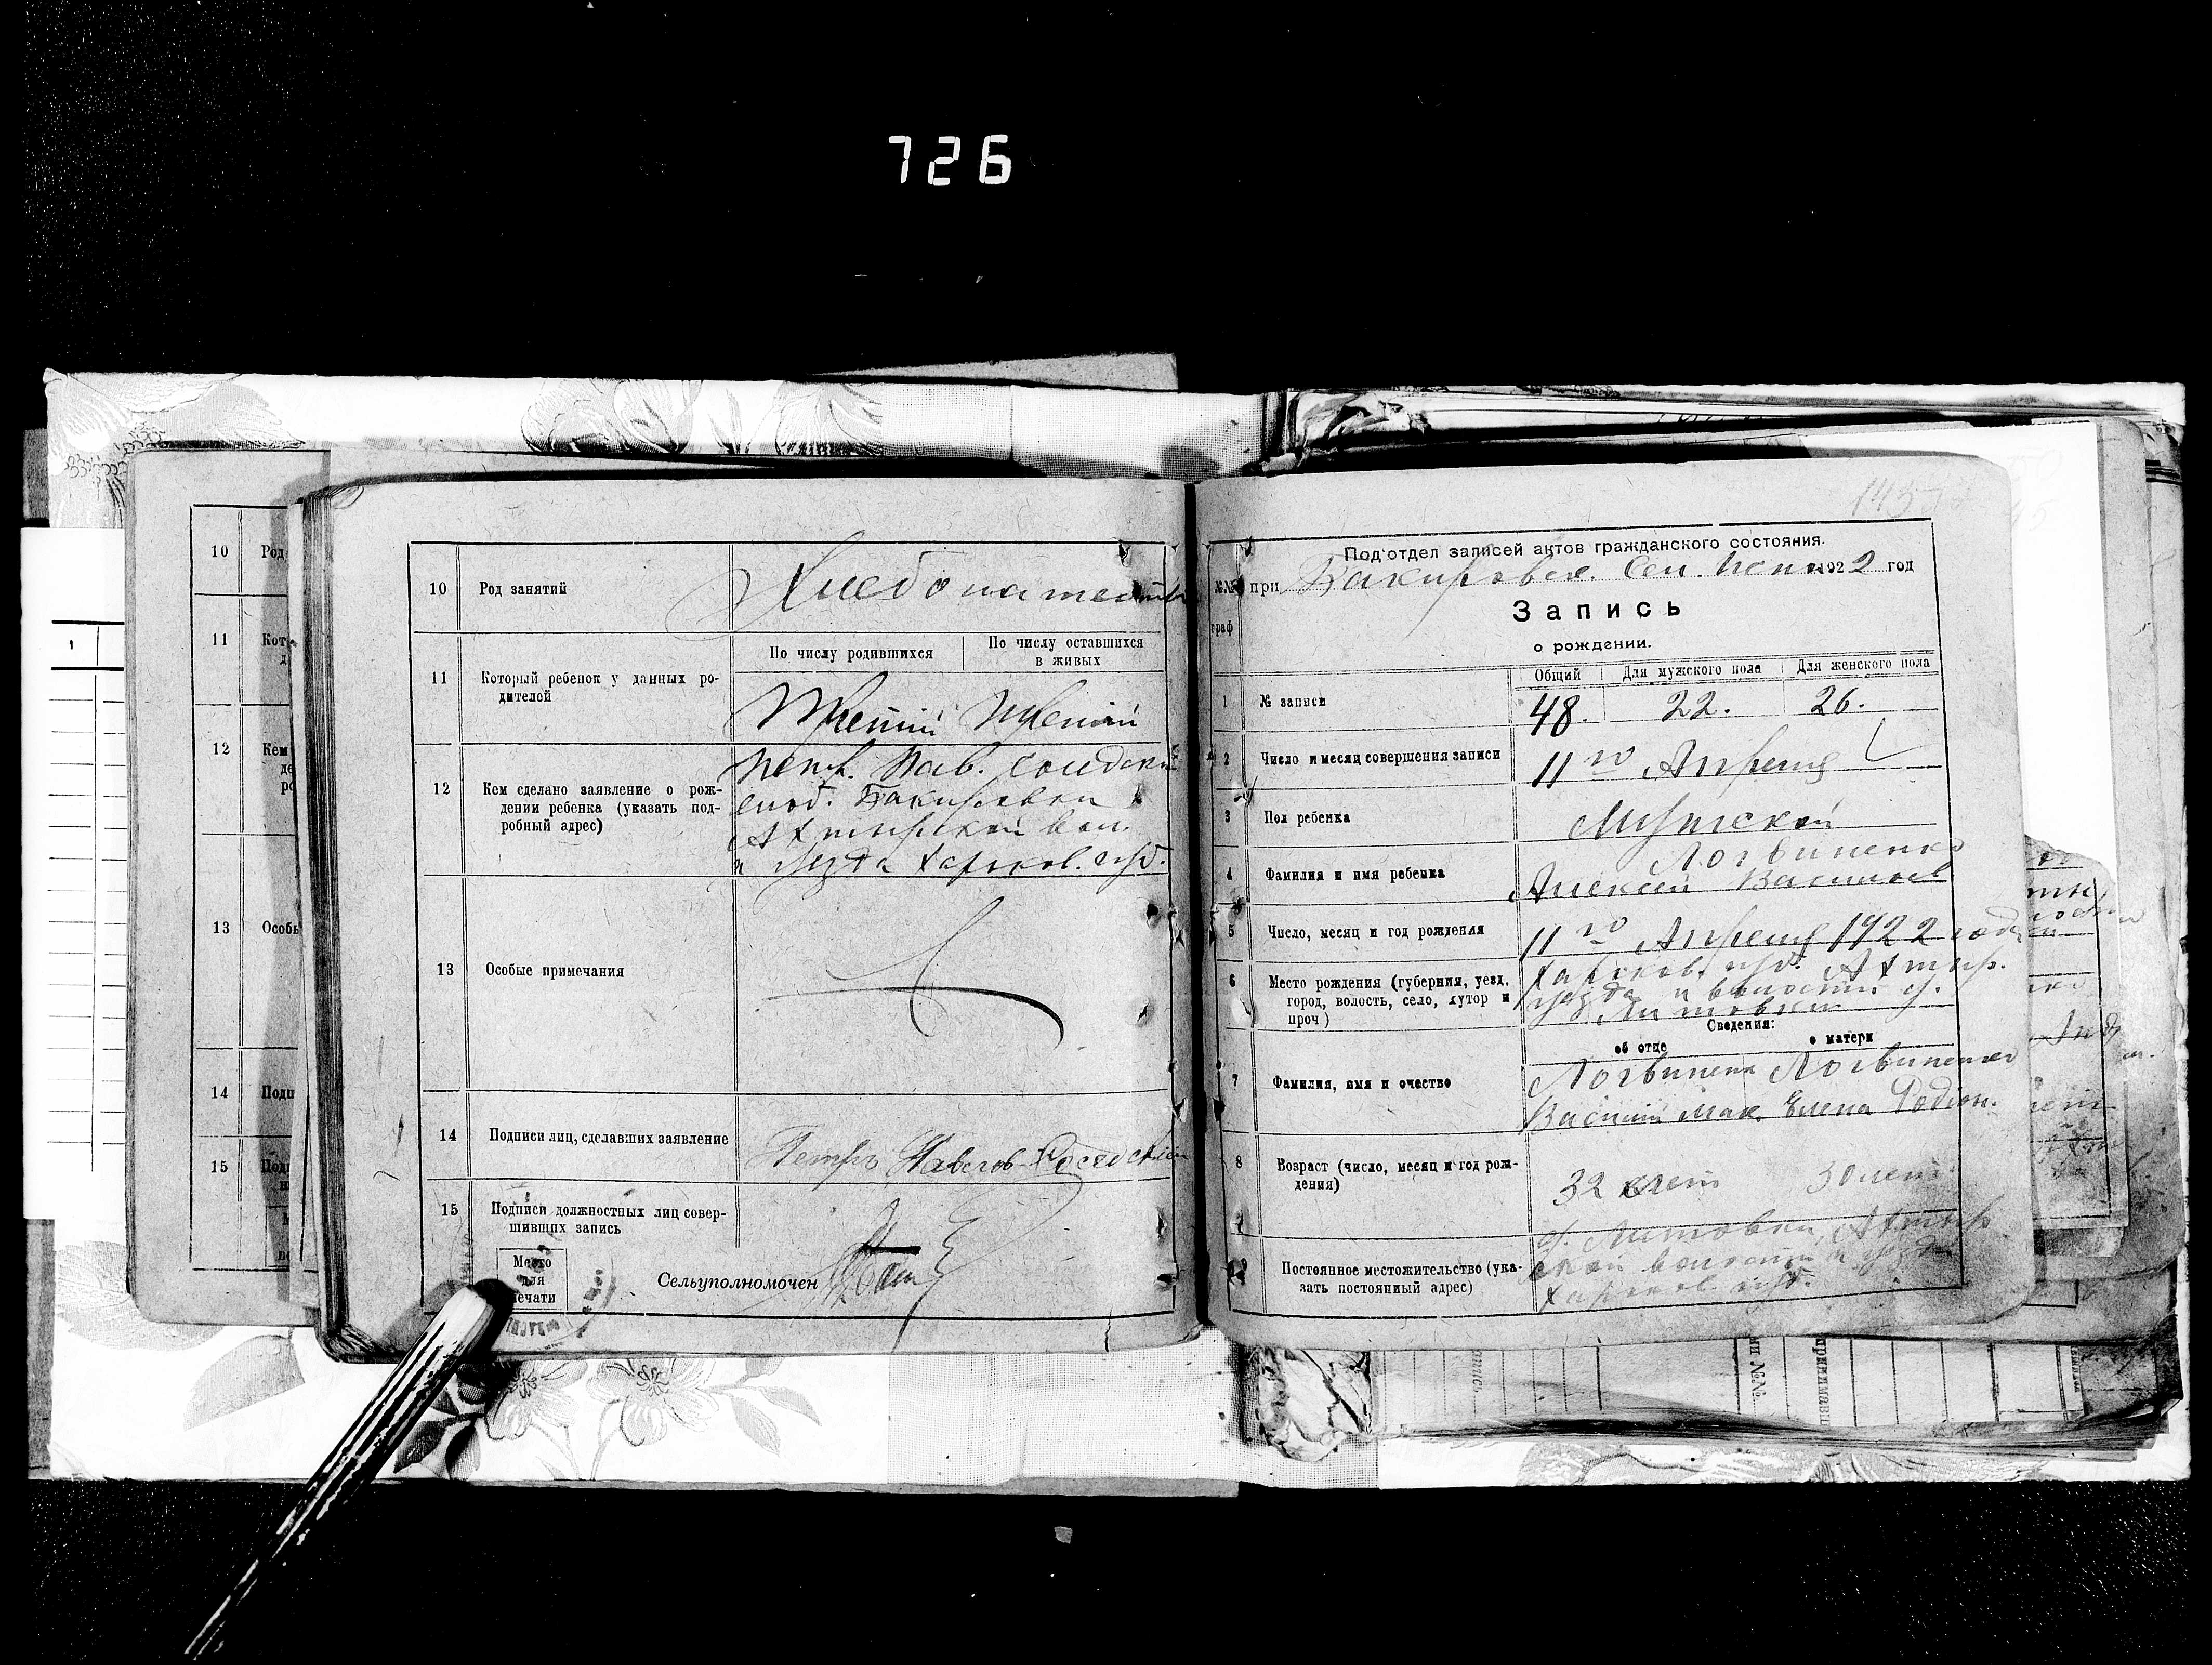 726
10 Род занятий Хлебопашество
11 Который ребенок у данных ро-
дителей
По числу родившихся
По числу оставшихся
в живых
Третий Третий
12 Кем сделано заявление о рож-
дении ребенка (указать под-
робный адрес)
слоб. Бакировки
Ахтырской вол.
и уезда Харьков. губ.
13 Особые примечания
14 Подписи лиц, сделавших заявление
Петръ Павлов
15 Подписи должностных лиц совер-
шивших запись
Место
для
печати
Сельуполномочен
10 Род
11 Кот
12 Кем
13 Особ
14 Подп
15
1
145
Под'отдел записей актов гражданского состояния.
№№ граф
при Бакировск. Сел. Испол 1922 год
Запись
о рождении.
Общий Для мужского пола Для женского пола
1 № записи 48. 22. 26.
2 Число и месяц совершения записи 11го Апреля
3 Пол ребенка Мужской
4 Фамилия и имя ребенка Логвиненко
Алексей Васильев
5 Число, месяц и год рождения 11го Апреля 1922 года
6 Место рождения (губерния, уезд,
город, волость, село, хутор и
проч)
Харьков. губ. Ахтыр.
уезда и волости
Литовки
Сведения:
об отце о матери
7 Фамилия, имя и очество
Логвиненк Логвиненко
Василий Мак. Елена Родион.
8 Возраст (число, месяц и год рож-
дения)
32 лет 30 лет
Постоянное местожительство (ука-
зать постоянный адрес)
Литовки, Ахтыр
ской волости и уезда
Харьков. губ.